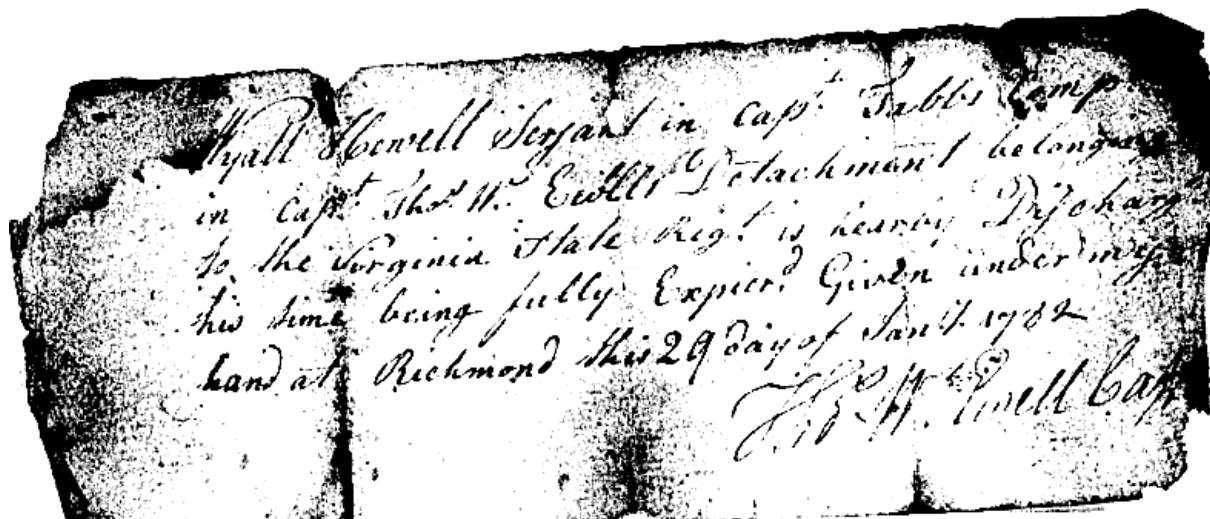 Wyatt Hewell Serjant in Capt. Tabbs Comp
in Capt. Thos. Wm. Ewells Detachment belonging
to the Virginia State Regt. is hearby Discharg
his time being fully Expierd Given under my
hand at Richmond this 29 day of Jany. 1782
Thos. Wm. Ewell Capt